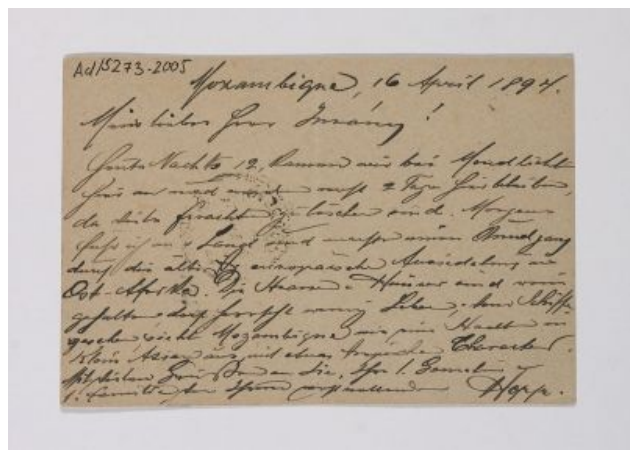 Ad/15273-2005
Mozambique, 16 April 1894.
Mein lieber Herr
Heute Nachts 12, kamen wir bei Mondlicht
hier an und 2 Tage hierbleiben,
da viele Fracht zu löschen sind. Morgens
fuhr ich an's Land und machte einen Rundgang
durch die älteste europäische Ansiedelung in
Ost-Afrika. Die Strassen & Häuser sind
gehalten herrscht wenig Leben, vom Schiffe
gesehen sieht Mozambique wie eine Stadt in
Klein Asien aus, mit etwas Character.
Mit besten Grüßen an Sie, Ihre l. Gemahlin &
l. Familie, Ihr Hopp.